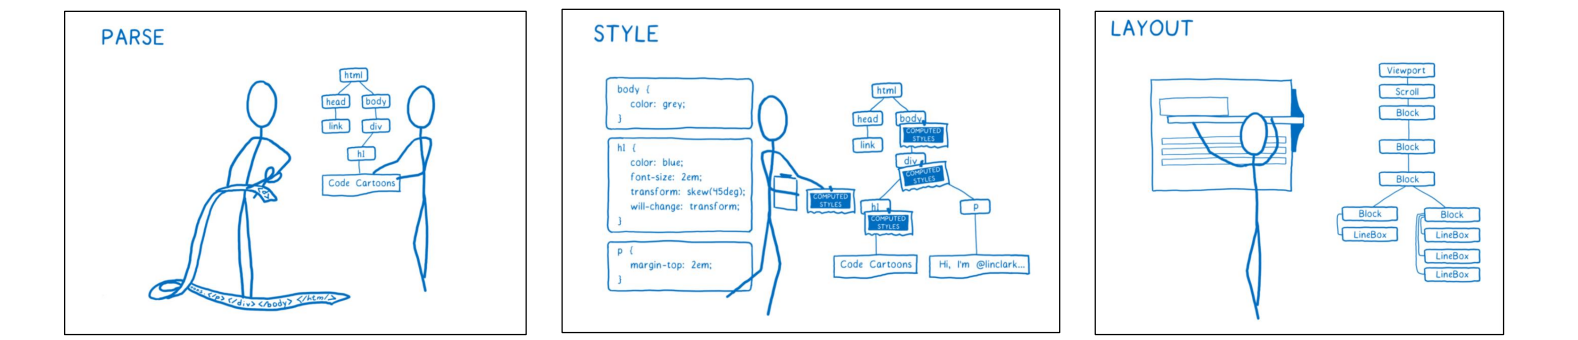 PARSE
html
head
body
link
div
hl
Code Cartoons
</p></div></body></html>
STYLE
body {
color: grey;
}
hl {
color: blue;
font-size: 2em;
transform: skew(45deg);
will-change: transform;
}
p {
margin-top: 2em;
}
html
head
body
COMPUTED
STYLES
link
div
COMPUTED
STYLES
COMPUTED
STYLES
hl
COMPUTED
STYLES
p
Code Cartoons
Hi, I'm @linclark...
LAYOUT
Viewport
Scroll
Block
Block
Block
Block
LineBox
Block
LineBox
LineBox
LineBox